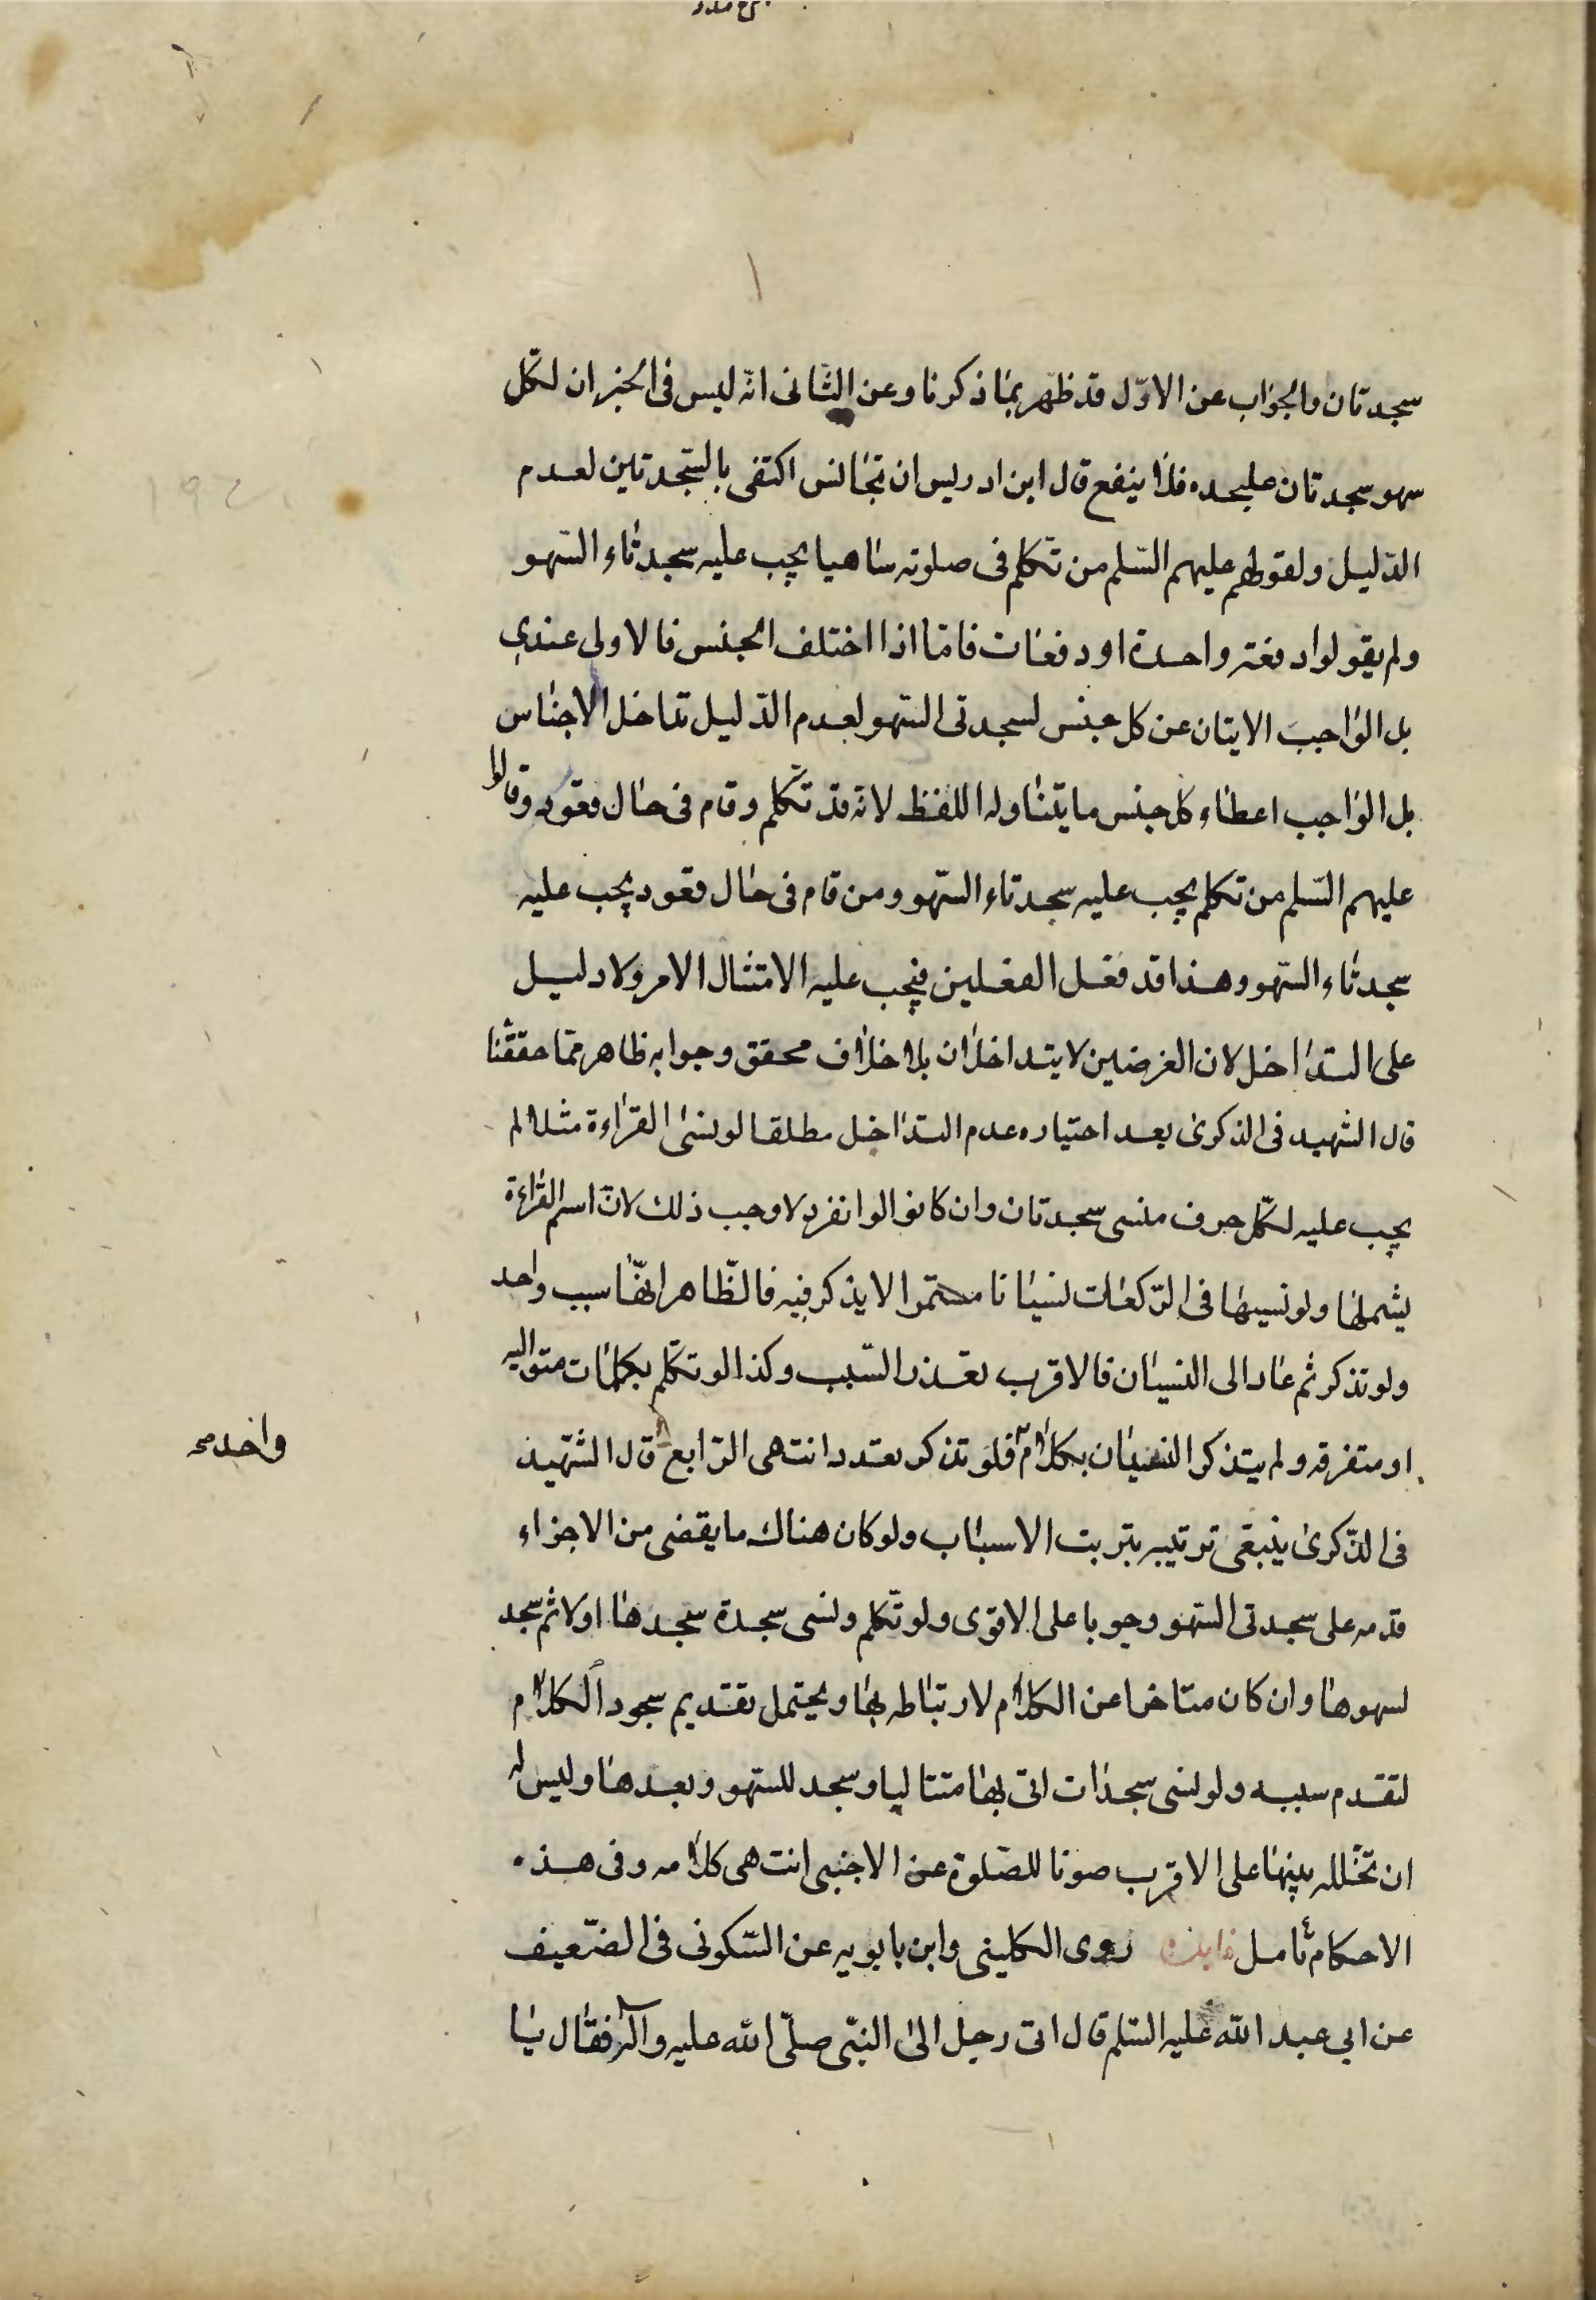 سجدتان والجواب عن الاوّل قد ظهر بما ذكرنا وعن الثّانى انّه ليس فى الخبر ان لكلّ
سهو سجدتان عليحده فلا ينفع قال ابن ادريس ان تجانس اكتفى بالسّجدتين لعدم
الدّليل ولقولهم عليهم السّلم من تكلّم فى صلوته ساهيا يجب عليه سجدتاء السّهو
ولم يقولوا دفعة واحدة او دفعات فامّا اذا اختلف الجنس فالاولى عندى
بل الواجب الايتان عن كل جنس لسجدتى السّهو لعدم الدّليل تداخل الاجناس
بل الواجب اعطاء كل جنس ما يتناوله اللفظ لانه قد تكلّم وقام فى حال قعود وقالوا
عليهم السّلم من تكلم يجب عليه سجدتاء السّهو ومن قام فى حال قعود يجب عليه
سجدتاء السّهو وهذا قد فعل الفعلين فيجب عليه الامتثال الامر ولا دليل
على التداخل لان الغرضين لا يتداخلان بلا خلاف محقق وجوابه ظاهر ممّا حققنا
قال الشهيد فى الذكرى بعد اختياره عدم التداخل مطلقا لو نسى القراءة مثلا لم
يجب عليه لكلّ حرف منسى سجدتان وان كانوا لو انفرد لاوجب ذلك لانّ اسم القراءة
يشملها ولو نسيها فى الرّكعات نسيانا مستمرا لا يذكر فيه فالظّاهر انّها سبب واحد
ولو تذكر ثم عاد الى النسيان فالاقرب تعدّد السّبب وكذا لو تكلّم بكلمات متواليه
او متفرقه ولم يتذكر النسيان بكلام فلو تذكر تعدد انتهى الرّابع قال الشّهيد
واحد صح
فى الذّكرى ينبغى ترتيبه بترتيب الاسباب ولو كان هناك ما يقضى من الاجزاء
قدمه على سجدتى السّهو وجوبا على الاقوى ولو تكلّم ونسى سجدة سجدها اولا ثم سجد
لسهوها وان كان متاخرا عن الكلام لارتباطه بها ويحتمل تقديم سجود الكلام
لتقدم سببه ولو نسى سجدات اتى بها متتاليا وسجد للسّهو وبعدها وليس له
ان تخلله بينها على الاقرب صونا للصّلوة عن الاجنبى انتهى كلامه وفى هذه
الاحكام تأمل فايدة روى الكلينى وابن بابويه عن السّكونى فى الضّعيف
عن ابي عبد الله عليه السّلم قال اتى رجل الى النبّى صلّى الله عليه وآله فقال يا